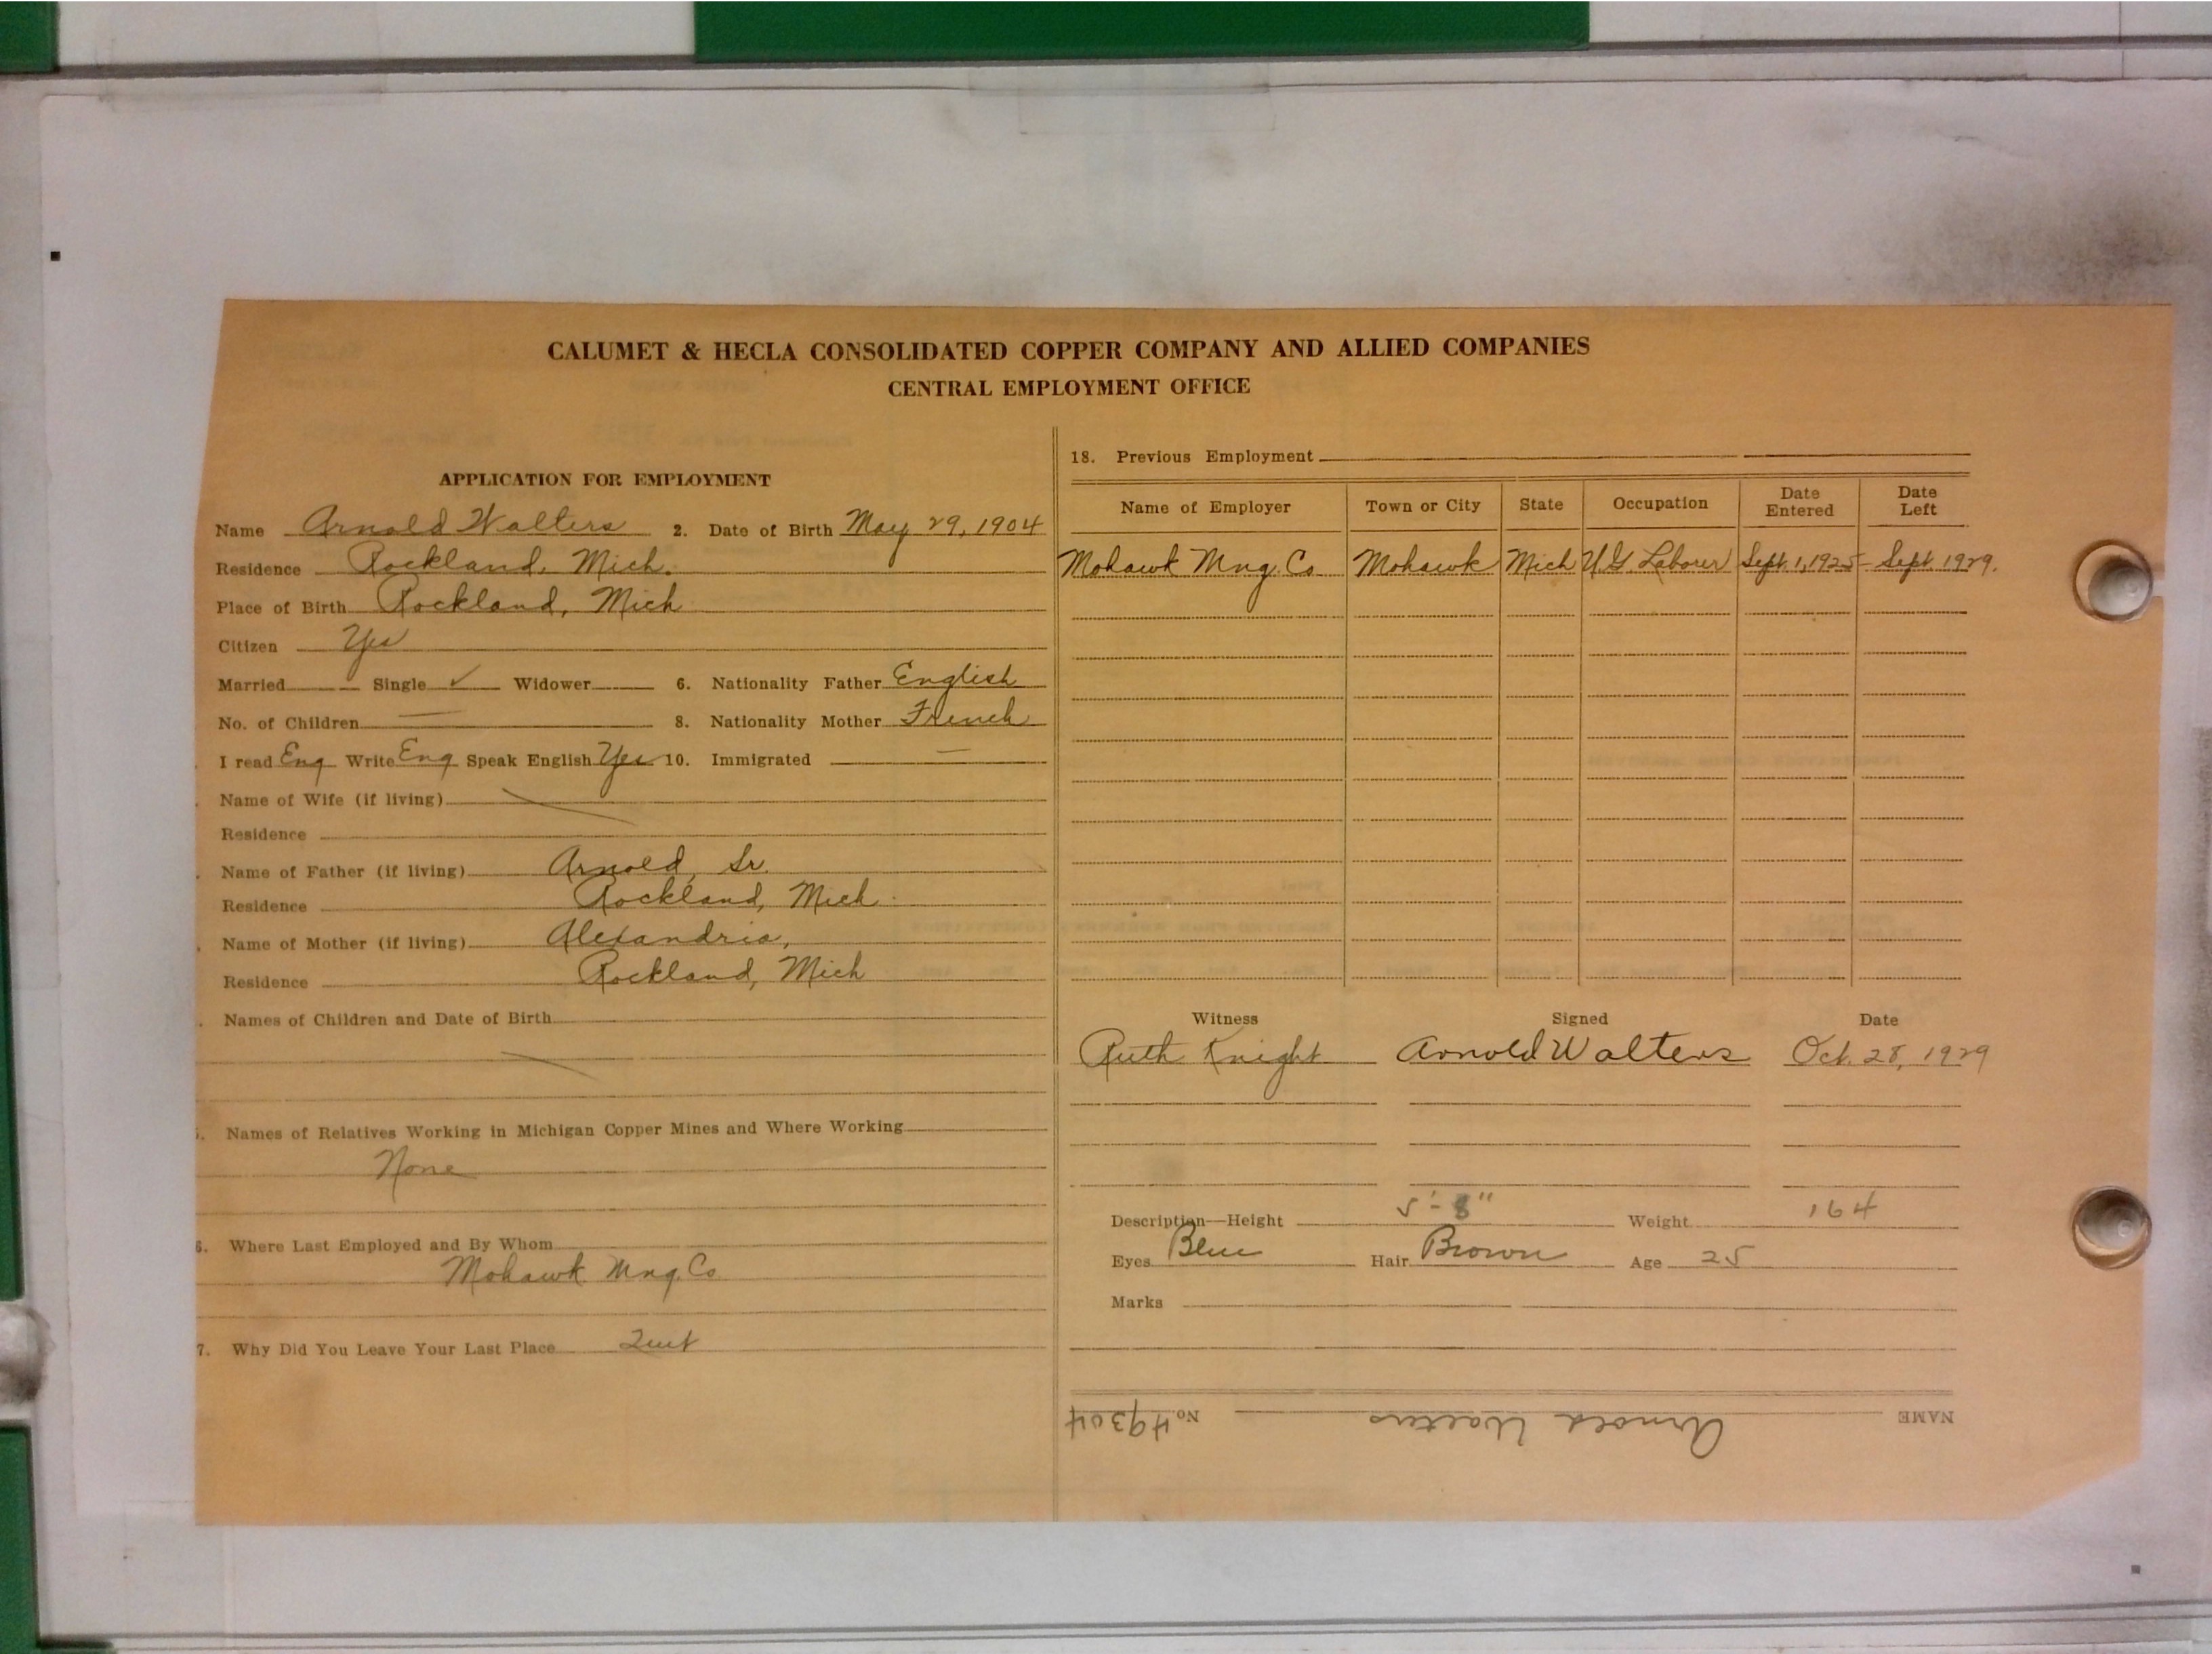 CALUMET & HECLA CONSOLIDATED COPPER COMPANY AND ALLIED COMPANIES
CENTRAL EMPLOYMENT OFFICE
APPLICATION FOR EMPLOYMENT
Name Arnold Walters 2. Date of Birth May 29, 1904
Residence Rockland, Mich.
Place of Birth Rockland, Mich
Citizen Yes
Married Single ✓ Widower 6. Nationality Father English
No. of Children — 8. Nationality Mother French
I read Eng Write Eng Speak English Yes 10. Immigrated —
Name of Wife (if living)
Residence
Name of Father (if living) Arnold, Sr.
Residence Rockland, Mich
Name of Mother (if living) Alexandria,
Residence Rockland, Mich
Names of Children and Date of Birth
Names of Relatives Working in Michigan Copper Mines and Where Working
None
6. Where Last Employed and By Whom
Mohawk Mng. Co
7. Why Did You Leave Your Last Place Quit
18. Previous Employment
Name of Employer Town or City State Occupation Date Entered Date Left
Mohawk Mng. Co Mohawk Mich U.G. Laborer Sept. 1, 1925 Sept. 1929.
Witness Signed Date
Ruth Knight Arnold Walters Oct. 28, 1929
Description—Height 5'-8" Weight 164
Eyes Blue Hair Brown Age 25
Marks
NAME Arnold Walters No. 49304